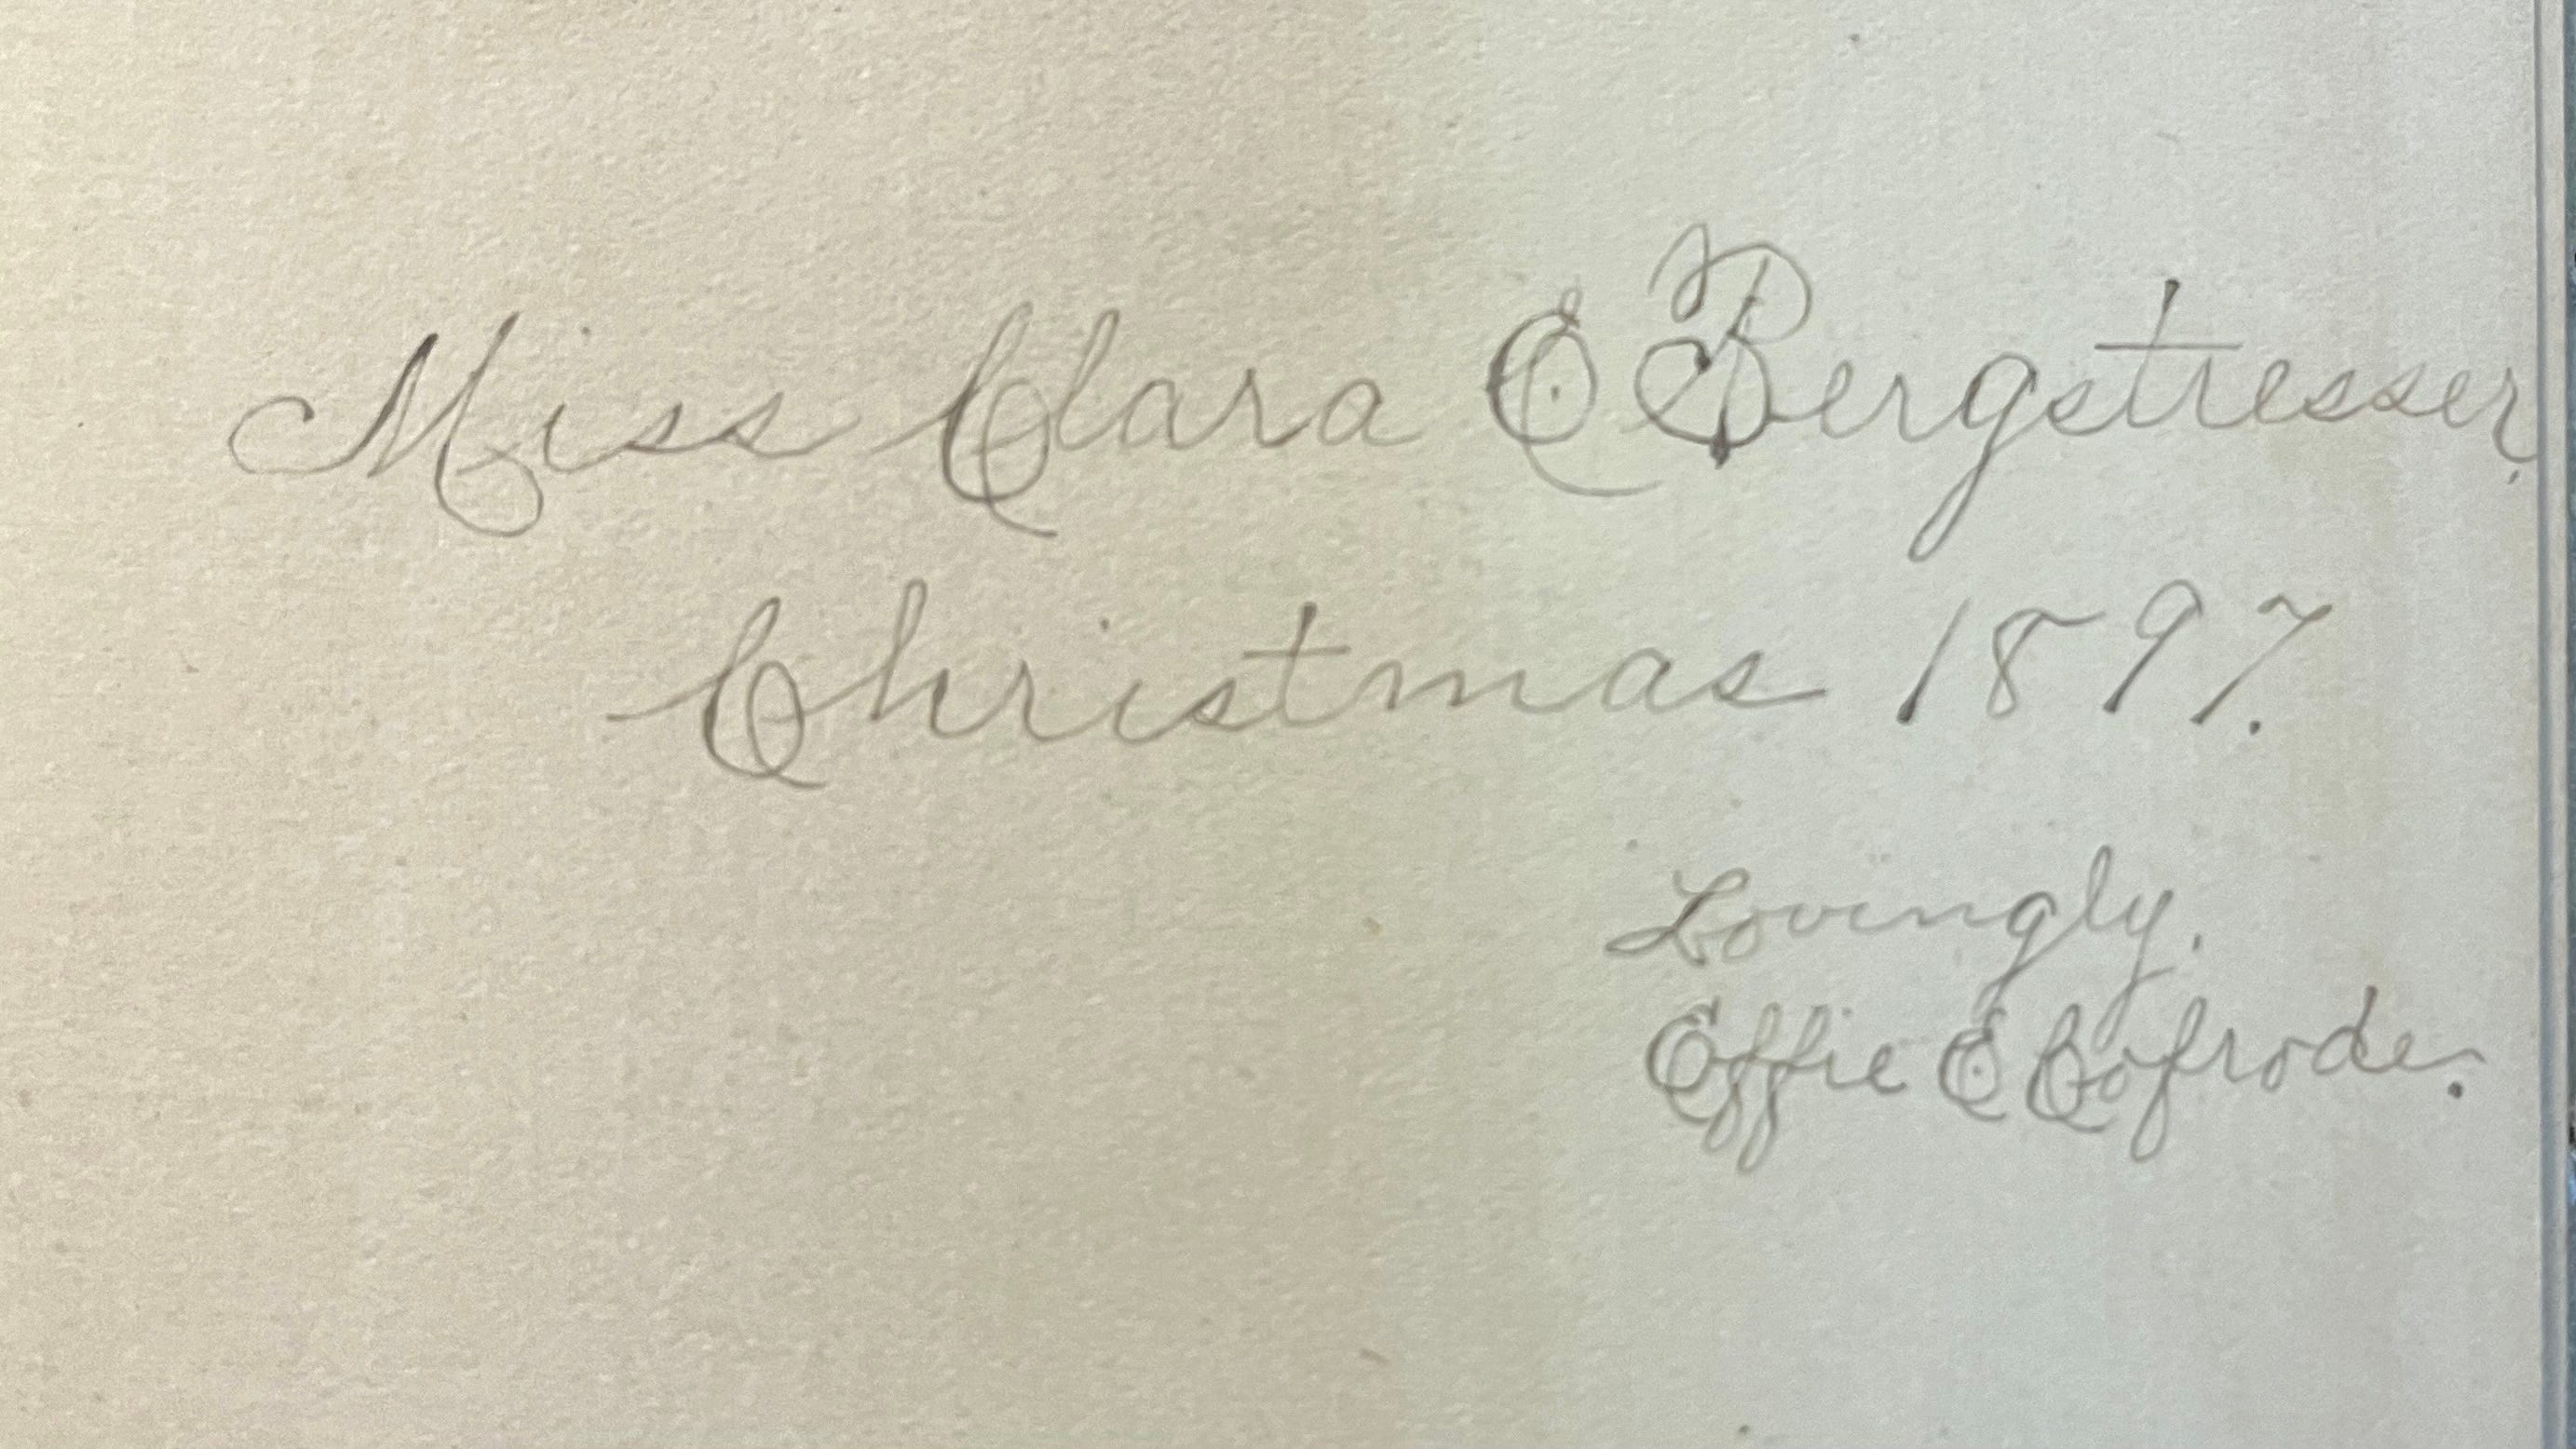 Miss Clara E Bergstresser,
Christmas 1897.
Lovingly.
Effie E Cofrode.